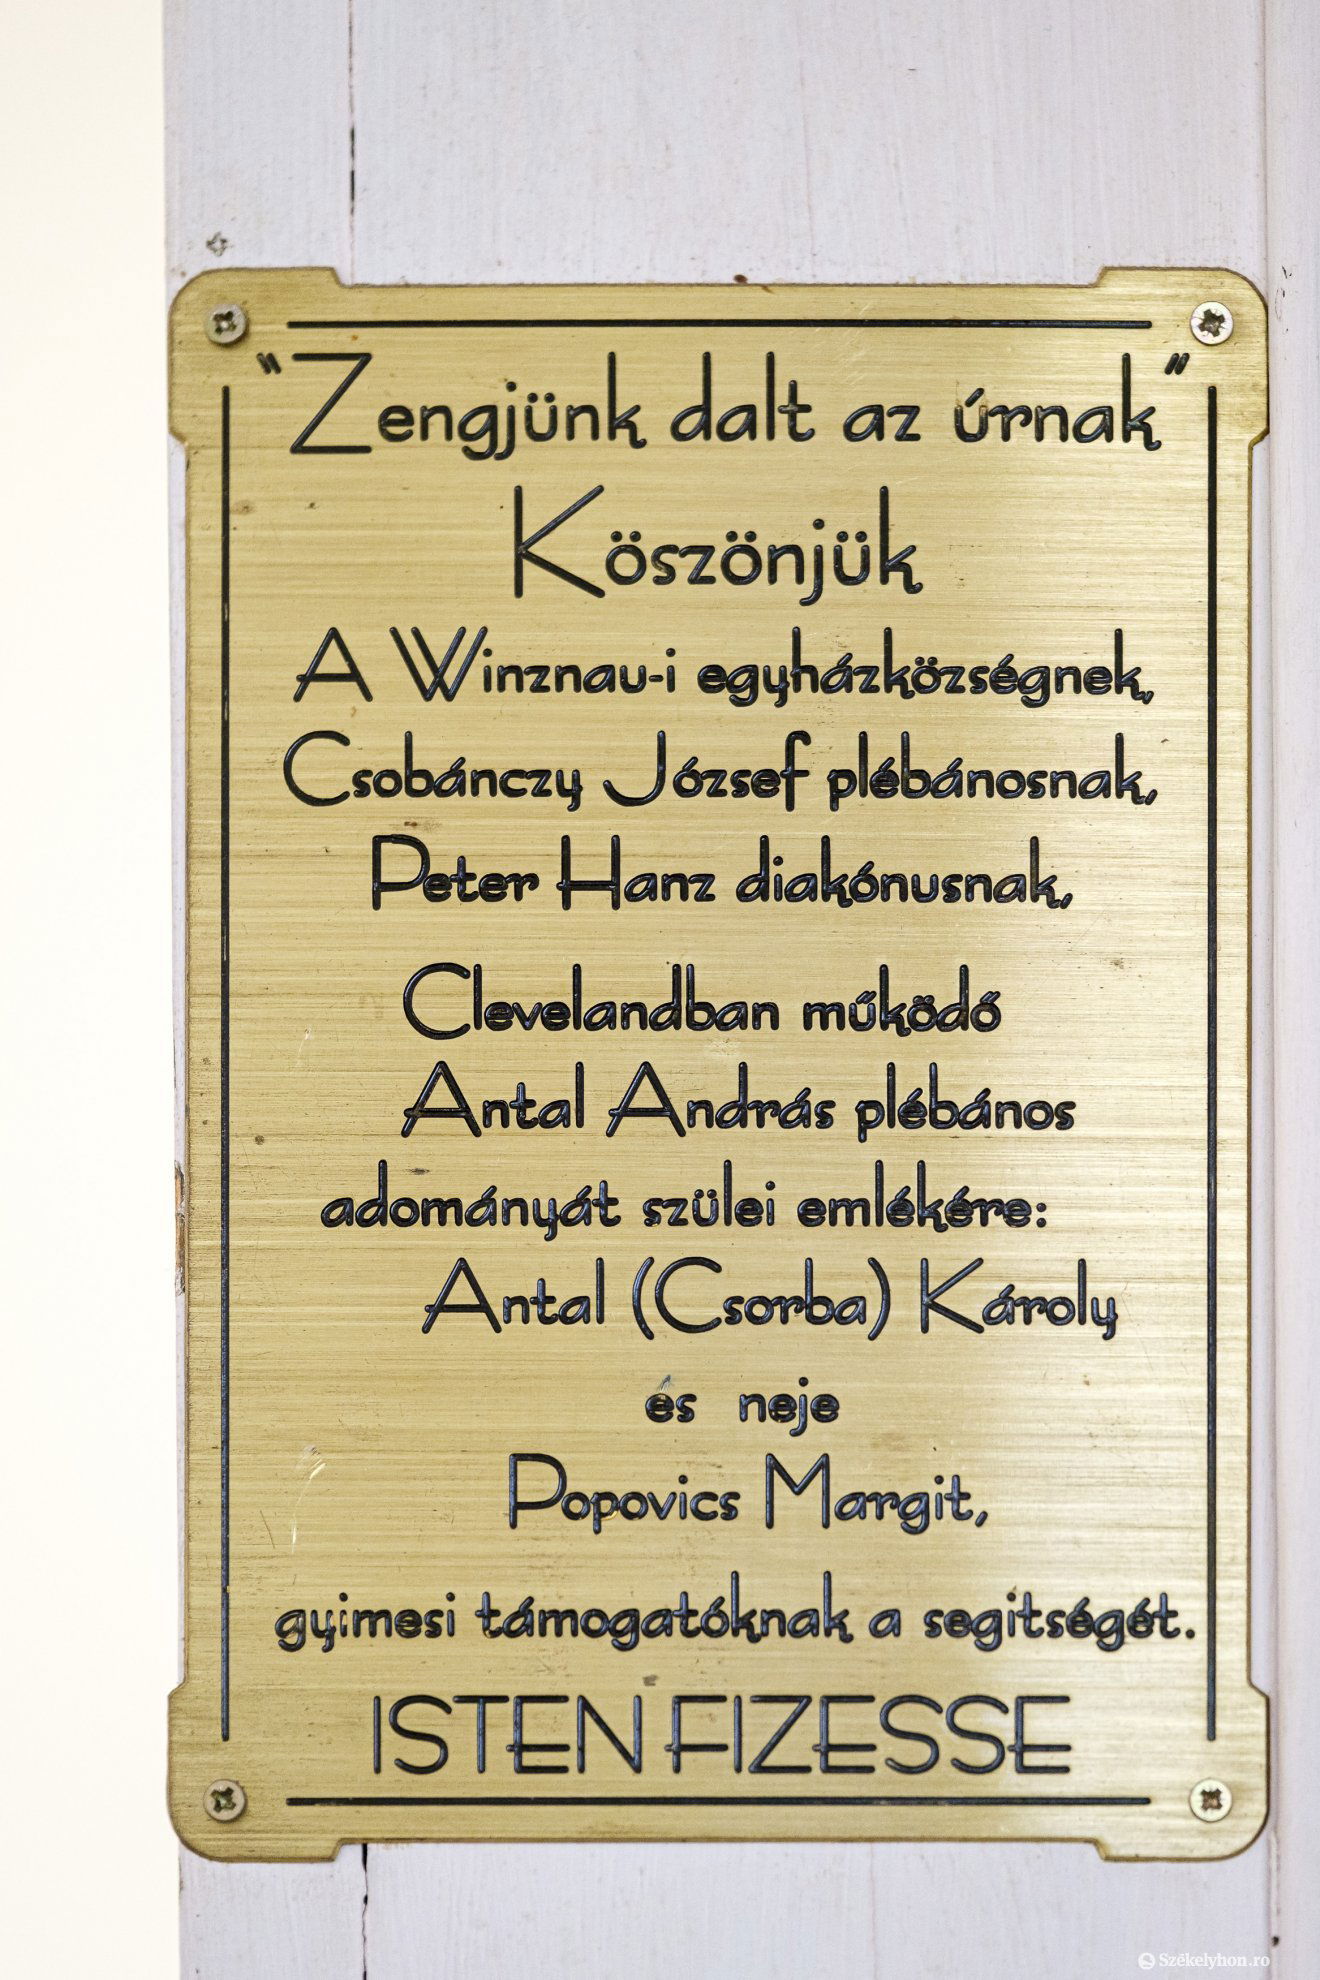 "Zengjünk dalt az úrnak"
Köszönjük
A Winznau-i egyházközségnek,
Csobánczy József plébánosnak,
Peter Hanz diakónusnak,
Clevelandban működő
Antal András plébános
adományát szülei emlékére:
Antal (Csorba) Károly
és neje
Popovics Margit,
gyimesi támogatóknak a segitségét.
ISTEN FIZESSE
Székelyhon.ro